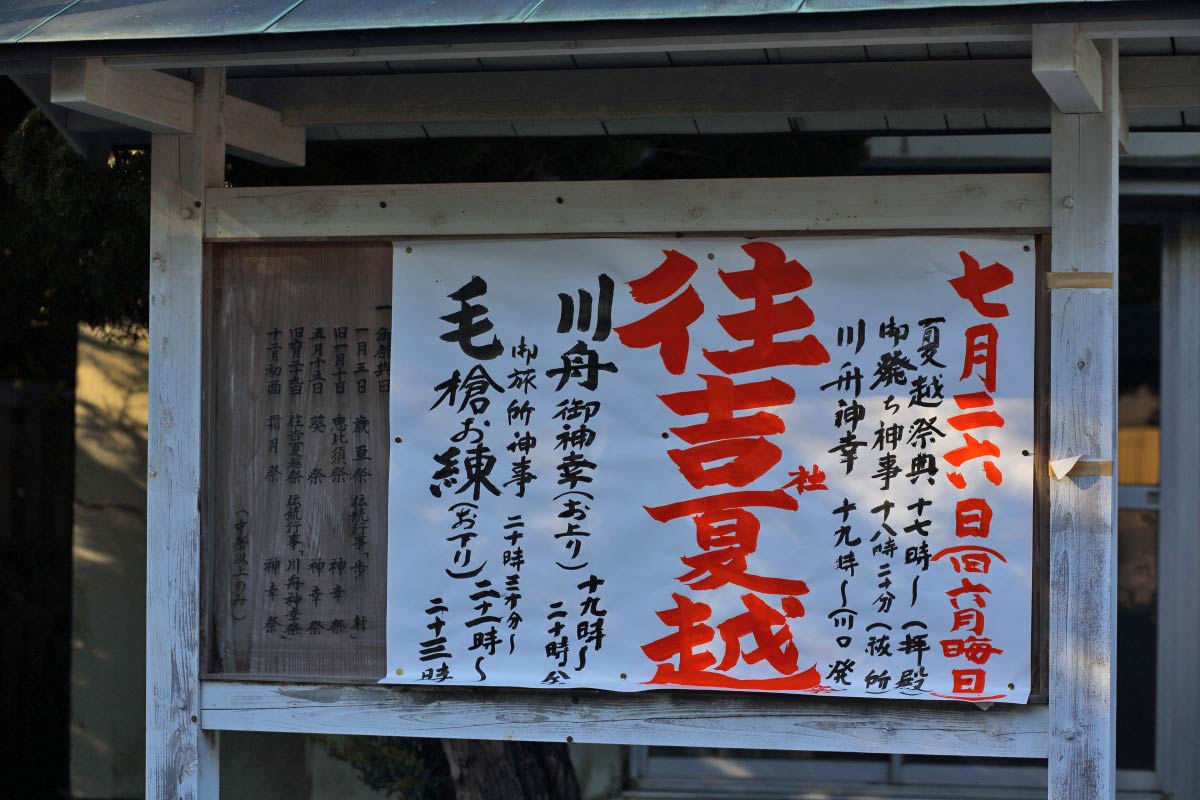 七月二六日(旧六月晦日)
夏越祭典 十七時〜(拝殿
御発ち神事 十八時二十分(祓所
川舟神幸 十九時〜(川口発
住吉社夏越
川舟御神幸(お上り) 十九時〜二十時
御旅所神事 二十時三十分〜
毛槍お練(お下り) 二十一時〜二十三時
一、斎祭典日
一月三日 歳亘祭 伝統行事「歩射」
旧一月十日 恵比須祭 神幸祭
五月十五日 葵祭 神幸祭
旧六月二十九日 住吉夏越祭 伝統行事「川舟神幸祭
十二月初酉 霜月祭 神幸祭
(中祭以上のみ)